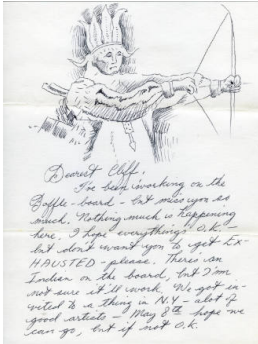 Dearest Cliff,
I've been working on the
Boffle-board - but miss you so
much. Nothing much is happening
here. I hope everything's O.K. -
but don't want you to get Ex-
HAUSTED - please. There's an
Indian on the board, but I'm
not sure it'll work. We got in-
vited to a thing in N.Y - alot of
good artists - May 8th hope we
can go, but if not O.K.